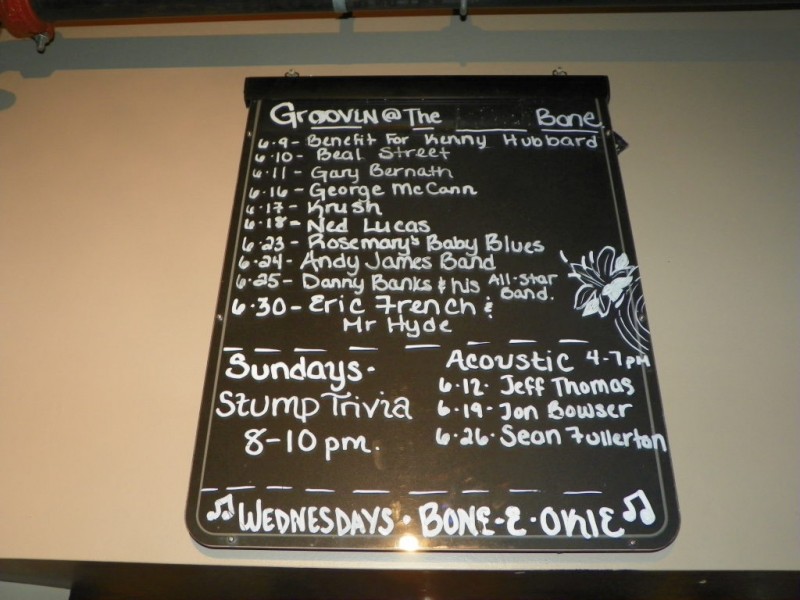 Groovin @ The Bone
6·9- Benefit For Kenny Hubbard
6·10- Beal Street
6·11- Gary Bernath
6·16- George McCann
6·17- Krush
6·18- Ned Lucas
6·23- Rosemary's Baby Blues
6·24- Andy James Band
6·25- Danny Banks & his All-Star Band.
6·30- Eric French &
Mr Hyde
Sundays·
Stump Trivia
8-10 pm.
Acoustic 4-7pm
6·12· Jeff Thomas
6·19· Jon Bowser
6·26· Sean Fullerton
Wednesdays · Bone-E-Okie